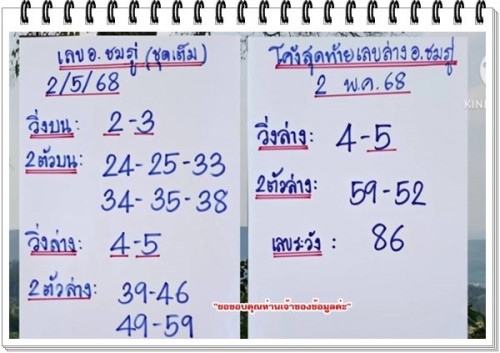 เลข อ. ชมภู่ (ชุดเต็ม)
2/5/68
วิ่งบน: 2-3
2ตัวบน: 24-25-33
34-35-38
วิ่งล่าง: 4-5
2ตัวล่าง: 39-46
49-59
โค้งสุดท้ายเลขล่าง อ. ชมภู่
2 พ.ค. 68
วิ่งล่าง: 4-5
2ตัวล่าง: 59-52
เลขระวัง : 86
"ขอขอบคุณท่านเจ้าของข้อมูลค่ะ"